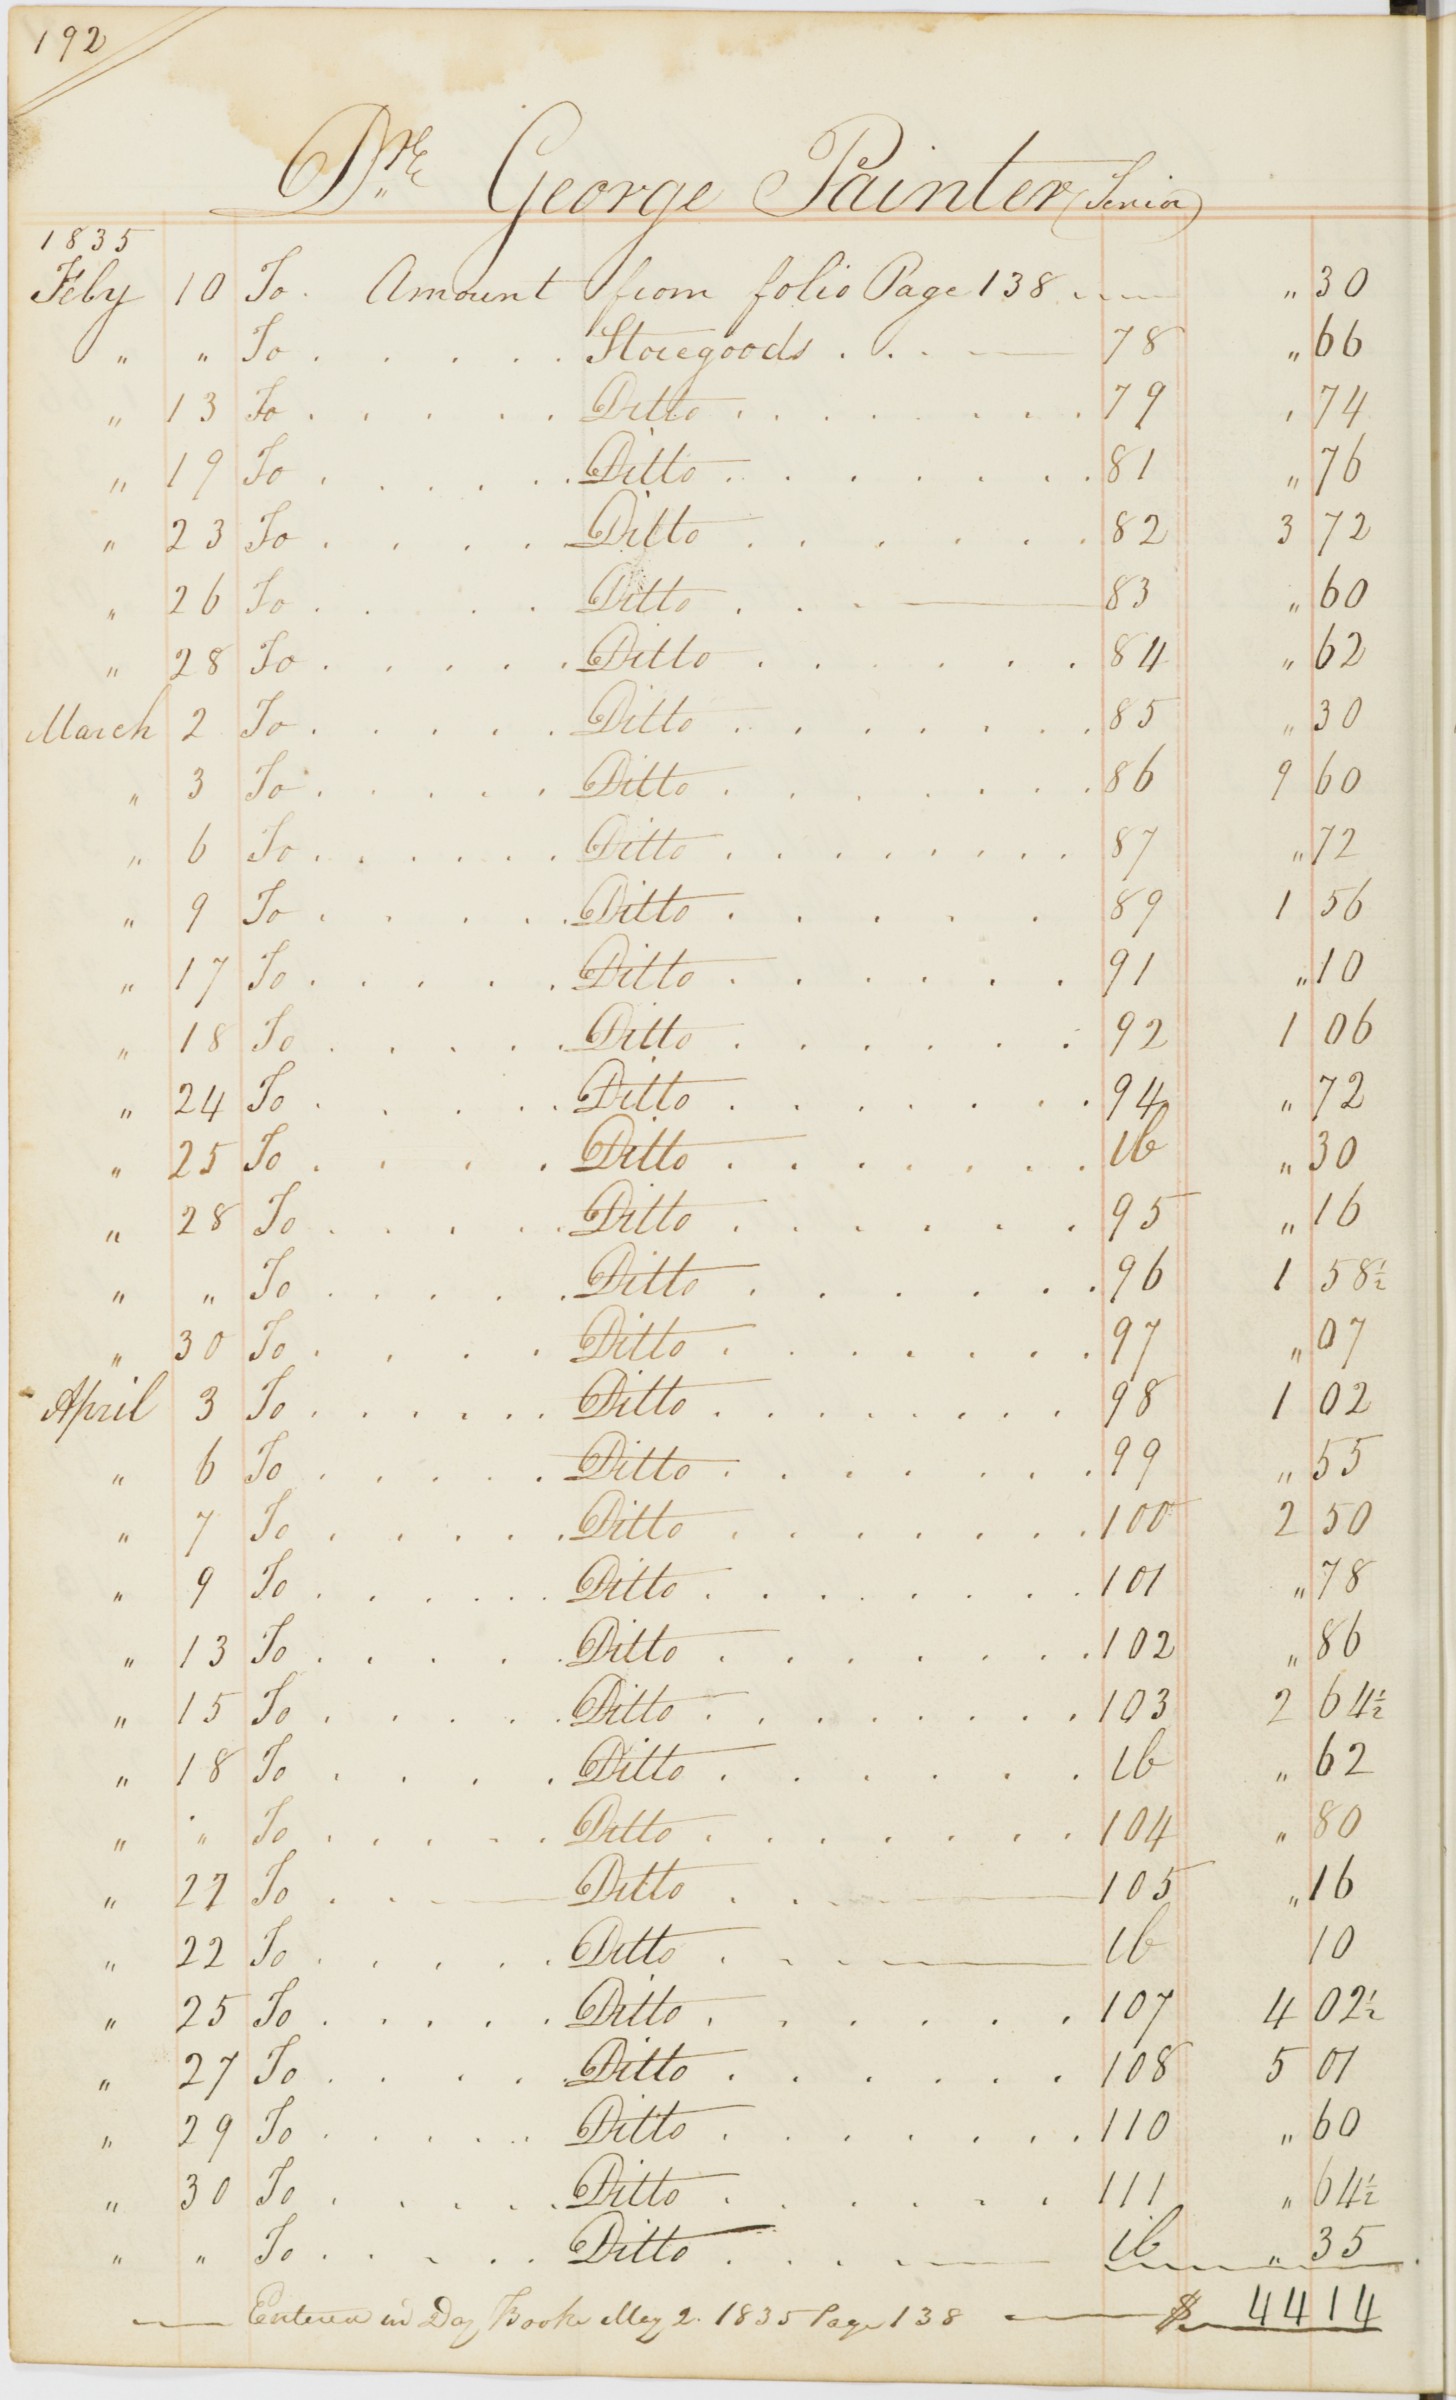 192
Dr. George Painter (Senior)
1835
Feby 10 To . Amount from folio Page 138 " 30
" " To . . . . . Storegoods . . . 78 " 66
" 13 To . . . . . Ditto . . . . . . . 79 " 74
" 19 To . . . . . Ditto . . . . . . . 81 " 76
" 23 To . . . . Ditto . . . . . . 82 3 72
" 26 To . . . . Ditto . . . 83 " 60
" 28 To . . . . . Ditto . . . . . . 84 " 62
March 2 To . . . . . Ditto . . . . . . . 85 " 30
" 3 To . . . . . Ditto . . . . . . . 86 9 60
" 6 To . . . . . . Ditto . . . . . . . . 87 " 72
" 9 To . . . . . Ditto . . . . . . 89 1 56
" 17 To . . . . . Ditto . . . . . . 91 " 10
" 18 To . . . . . Ditto . . . . . . 92 1 06
" 24 To . . . . . Ditto . . . . . . . 94 " 72
" 25 To . . . . Ditto . . . . . . . Ib " 30
" 28 To . . . . . Ditto . . . . . . 95 " 16
" " To . . . . . Ditto . . . . . . 96 1 58½
" 30 To . . . . Ditto . . . . . . . 97 " 07
April 3 To . . . . . Ditto . . . . . . . . 98 1 02
" 6 To . . . . . Ditto . . . . . . . 99 " 55
" 7 To . . . . . Ditto . . . . . . . 100 2 50
" 9 To . . . . . . Ditto . . . . . . . 101 " 78
" 13 To . . . . . Ditto . . . . . . . 102 " 86
" 15 To . . . . . Ditto . . . . . . . . 103 2 64½
" 18 To . . . . Ditto . . . . . . Ib " 62
" " To . . . . . Ditto . . . . . . . 104 " 80
" 22 To . . Ditto . . 105 " 16
" 22 To . . . . . Ditto . . Ib 10
" 25 To . . . . . Ditto . . . . . . 107 4 02½
" 27 To . . . . . Ditto . . . . . . 108 5 01
" 29 To . . . . . Ditto . . . . . . . 110 " 60
" 30 To . . . . . Ditto . . . . . . 111 " 64½
" " To . . . . . Ditto . . . Ib " 35
Entered in Day Book May 2. 1835 Page 138 $ 44 14